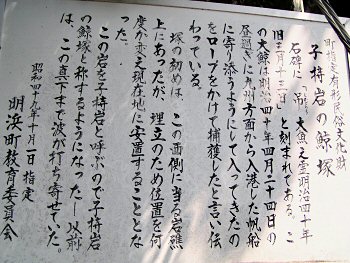 町指定有形民俗文化財
子持岩の鯨塚
石碑に「弔　大魚之霊明治四十年
旧三月十三日　と刻まれてある。こ
の大鯨は明治四十年四月二十四日の
昼過ぎに九州方面から入港した帆船
に寄り添うようにして入ってきたの
をロープをかけて捕獲したと言い伝
わっている。
塚の初めは、この西側に当る岩礁
上にあったが、埋立のため位置を何
度か変え現在地に安置することとな
った。
この岩を子持岩と呼ぶので子持岩
の鯨塚と称するようになった―以前
は、この真下まで波が打ち寄せていた。
昭和四十九年十月一日指定
明浜町教育委員会